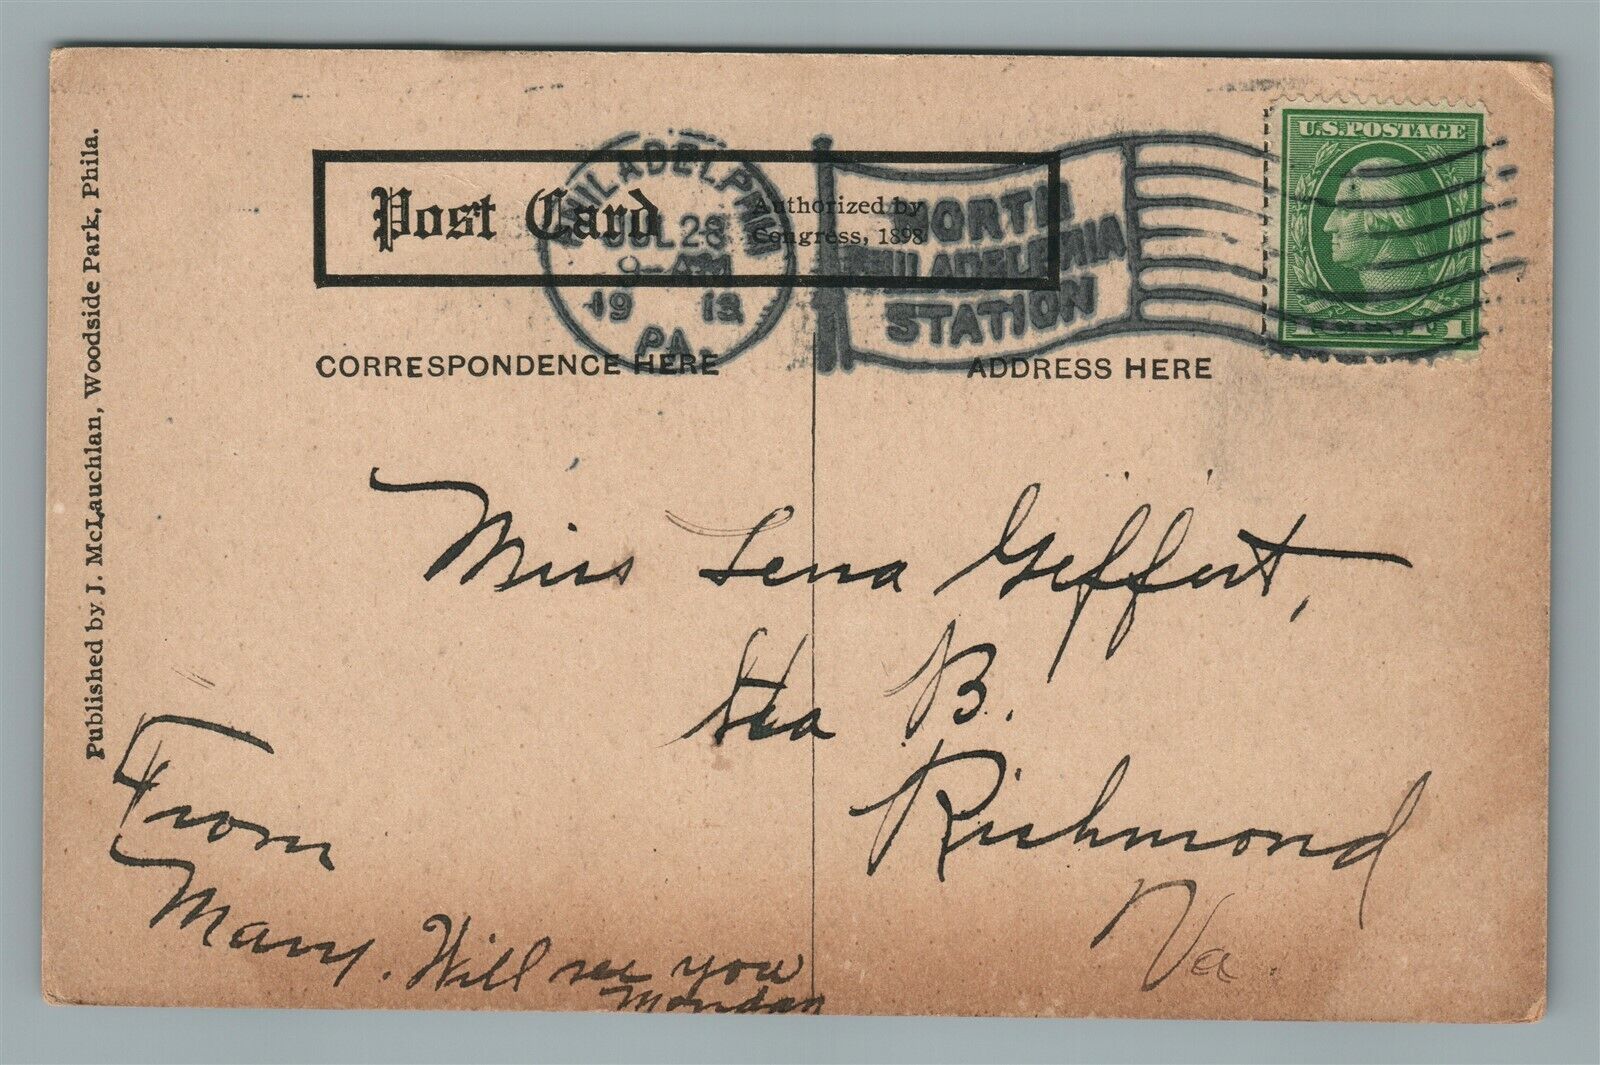 Published by J. McLauchlan, Woodside Park, Phila.
Post Card
Authorized by
Congress, 1898
PHILADELPHIA
JUL 28
9-AM
19 13
PA.
NORTH
PHILADELPHIA
STATION
U.S. POSTAGE
1
CORRESPONDENCE HERE
ADDRESS HERE
Miss Lena Geffert,
Sta B.
Richmond
Va.
From
Mary. Will see you
Monday